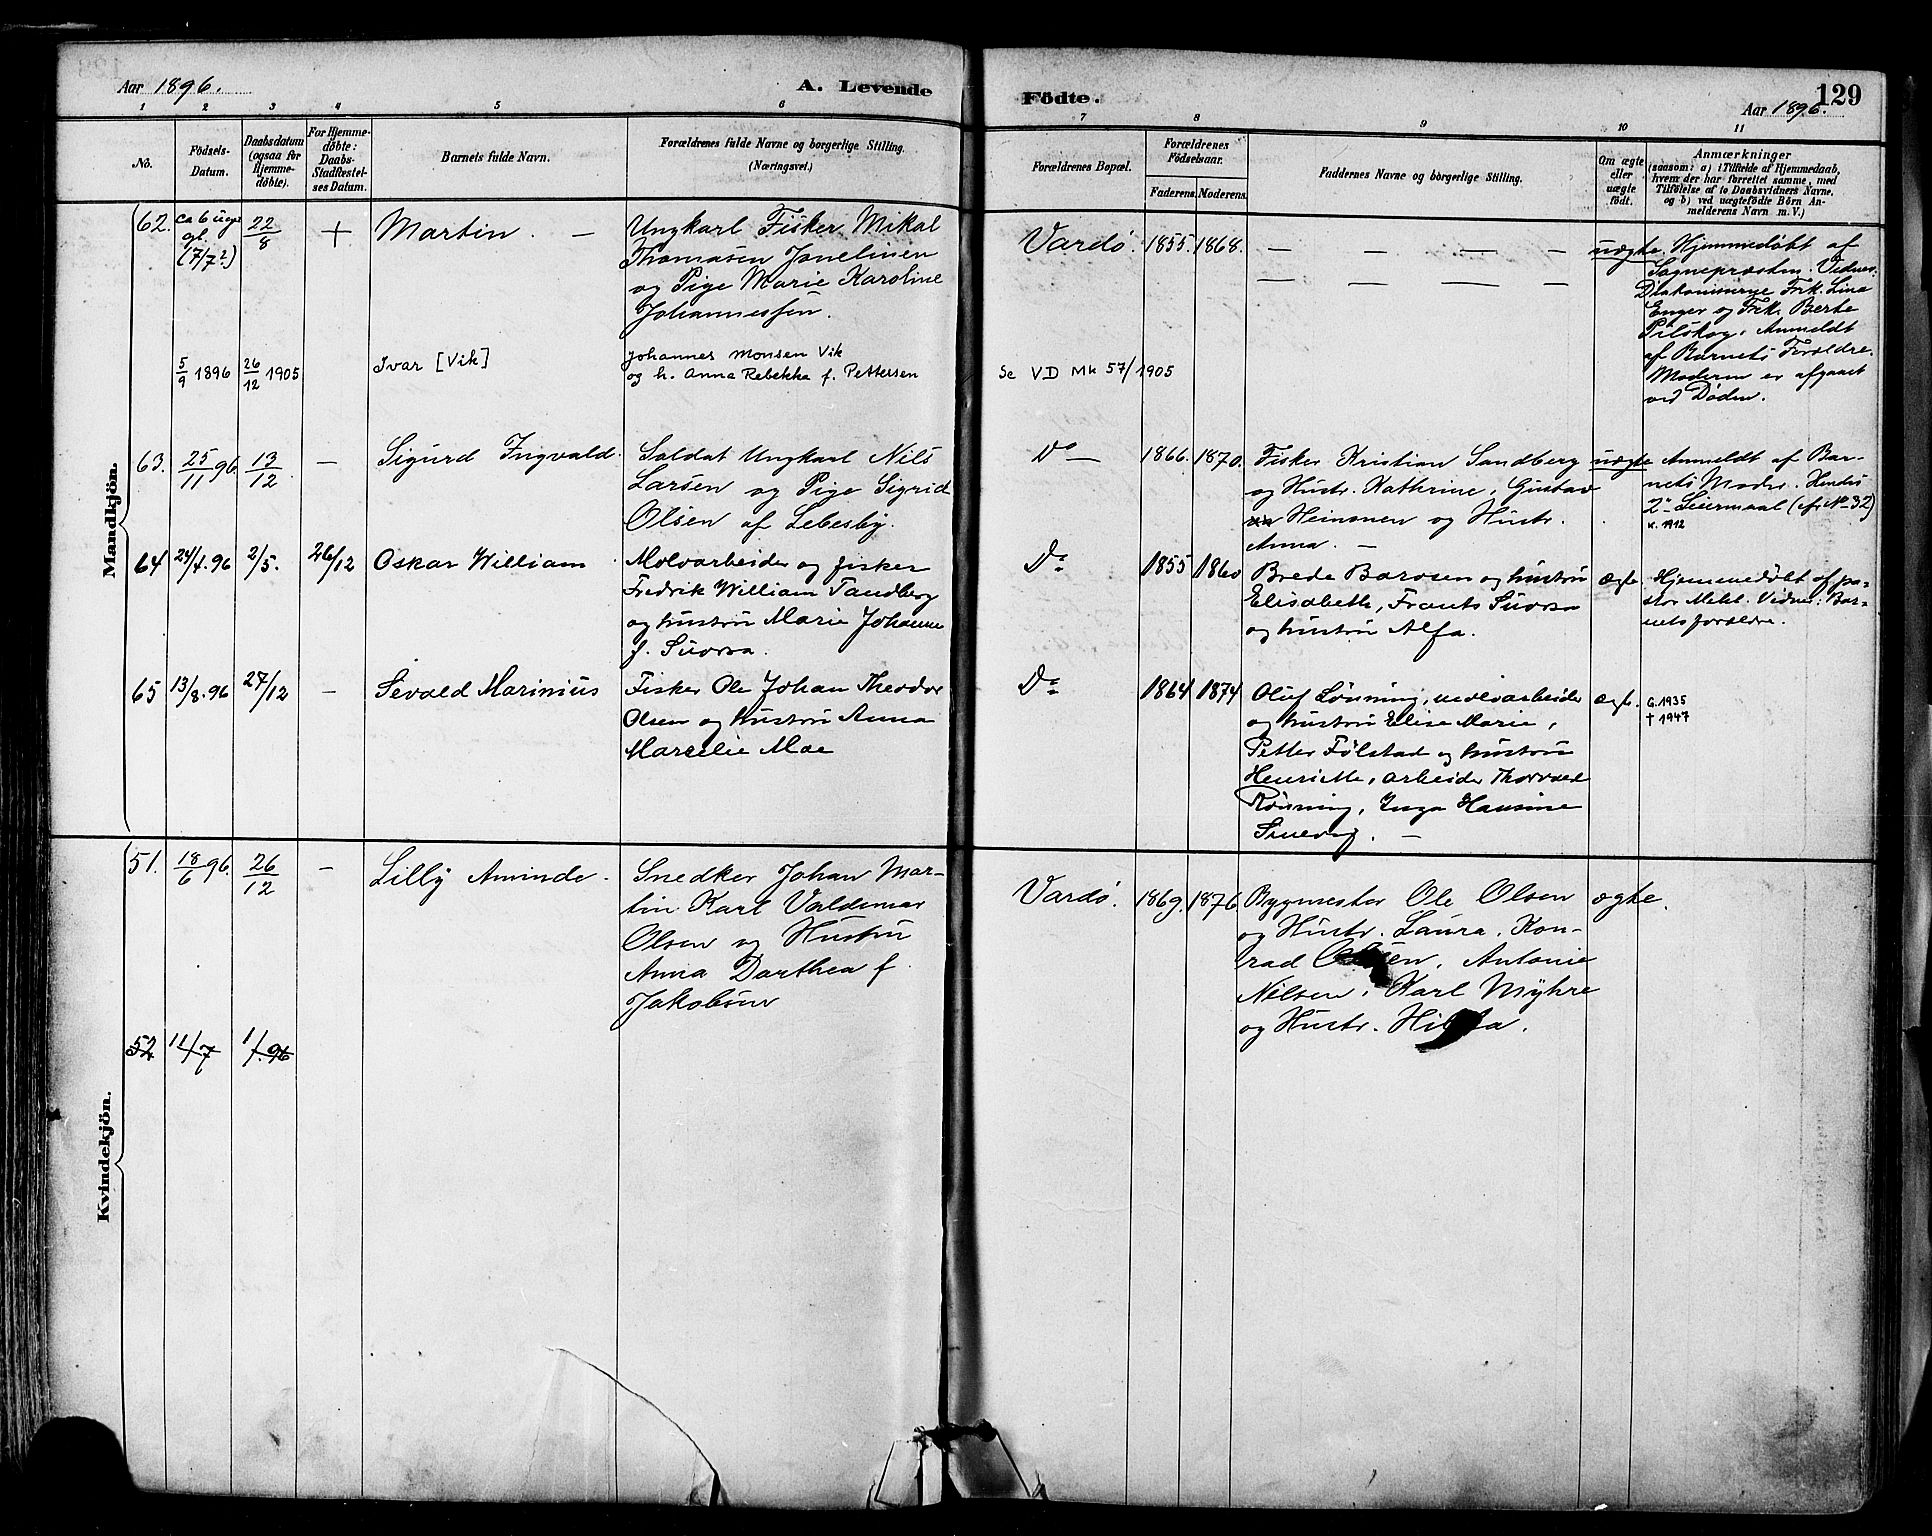 Aar 1896.
A. Levende
Födte.
129
Aar 1896.
1 2 3 4 5 6 7 8 9 10 11
No.
Födsels-
Datum.
Daabsdatum
(ogsaa for
Hjemme-
døbte).
For Hjemme-
døbte:
Daabs-
Stadfæstel-
ses Datum.
Barnets fulde Navn.
Forældrenes fulde Navne og borgerlige Stilling.
(Næringsvei.)
Forældrenes Bopæl.
Forældrenes
Fødselsaar.
Faderens. Moderens.
Faddernes Navne og borgerlige Stilling.
Om ægte
eller
uægte
født.
Anmærkninger
(saasom: a) i Tilfælde af Hjemmedaab,
hvem der har forrettet samme, med
Tilföielse af to Daabsvidners Navne,
og b) ved uægtefödte Börn An-
melderens Navn m. V.)
Mandkjön.
62. ca 6 uger
gl.
(17/7?)
22/8
+
Martin. —
Ungkarl Fisker Mikal
Thomasen Janelinen
og Pige Marie Karoline
Johannessen.
Vardø. 1855. 1868.
— — — — —
— — — — —
uægte.
Hjemmedøbt af
Sognepræsten. Vidner:
Diakonisserne Frk. Lina
Enger og Frk. Berte
Pilskog. Anmeldt
af Barnets Forældre.
Moderen er afgaaet
ved Døden.
5/9 1896 26/12 1905
Ivar [Vik]
Johannes Monsen Vik
og h. Anna Rebekka f. Pettersen
Se VD Mk 57/1905
63. 25/11 96. 13/12 —
Sigurd Ingvald.
Soldat Ungkarl Nils
Larsen og Pige Sigrid
Olsen af Lebesby.
Do — 1866. 1870.
Fisker Kristian Sandberg
og Hustr. Kathrine, Gustav
Heinonen og Hustr.
Anna. —
uægte
Anmeldt af Bar-
nets Moder. Hendes
2det Leiermaal (cfr. No 32)
K. 1912
64 24/4. 96 2/5. 26/12
Oskar William
Molvarbeider og fisker
Fredrik William Tandberg
og hustru Marie Johanne
f. Suorsa.
Do 1855 1860
Brede Barosen og hustru
Elisabeth, Frants Suorsa
og hustru Alfa.
ægte.
Hjemmedøbt af pa-
stor Mehl. Vidner: Bar-
nets forældre.
65 13/8. 96 27/12 —
Sevald Marinius
Fisker Ole Johan Theodor
Olsen og hustru Anna
Marselie Moe
Do 1864 1874
Oluf Lønning, molvarbeider
og hustru Elise Marie,
Petter Følstad og hustru
Henriette, arbeider Thorvald
Rønning, Inga Hansine
ægte.
G. 1935
† 1947
Kvindekjön.
51. 18/6 96. 26/12 —
Lilly Aminde.
Snedker Johan Mar-
tin Karl Valdemar
Olsen og Hustru
Anna Dorthea f.
Jakobsen
Vardø. 1869. 1876.
Bygmester Ole Olsen
og Hustr. Laura, Kon-
rad Olsen, Antonie
Nilsen, Karl Myhre
og Hustr. Hilda.
ægte.
52 11/7 1/. 96